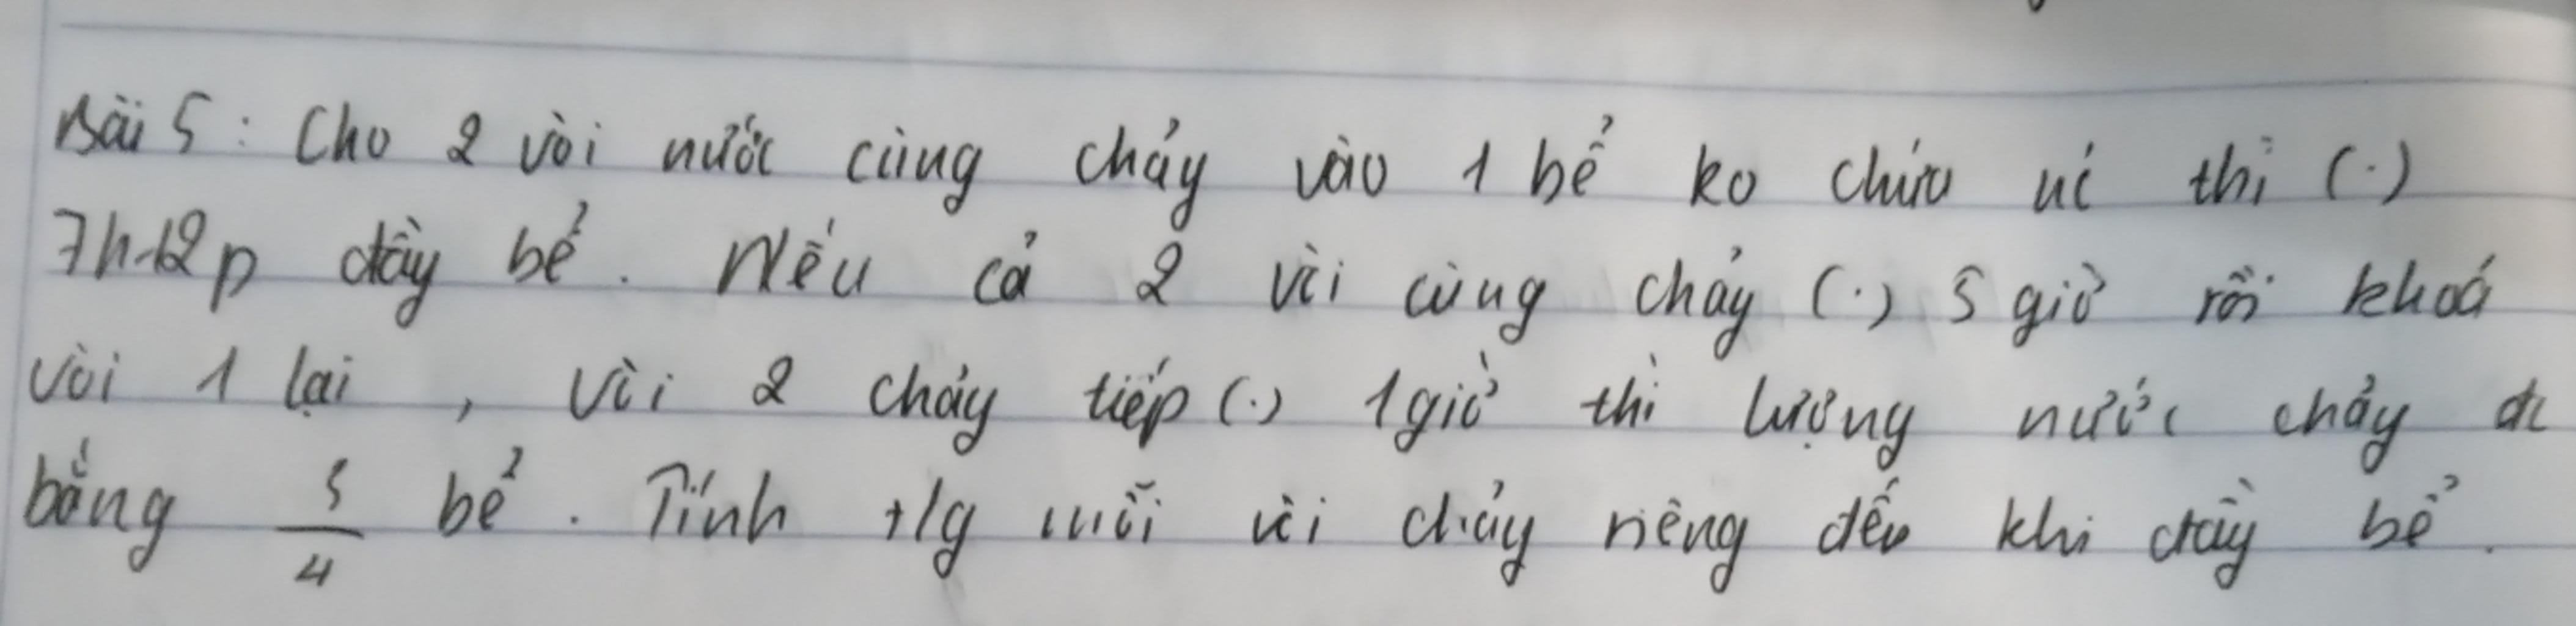 Bài 5: Cho 2 vòi nước cùng chảy vào 1 bể ko chứa nc thì (.)
7h12p đầy bể. Nếu cả 2 vòi cùng chảy (.) 5 giờ rồi khoá
vòi 1 lại, vòi 2 chảy tiếp (.) 1giờ thì lượng nước chảy đc
bằng 3/4 bể. Tính tg mỗi vòi chảy riêng đến khi đầy bể.